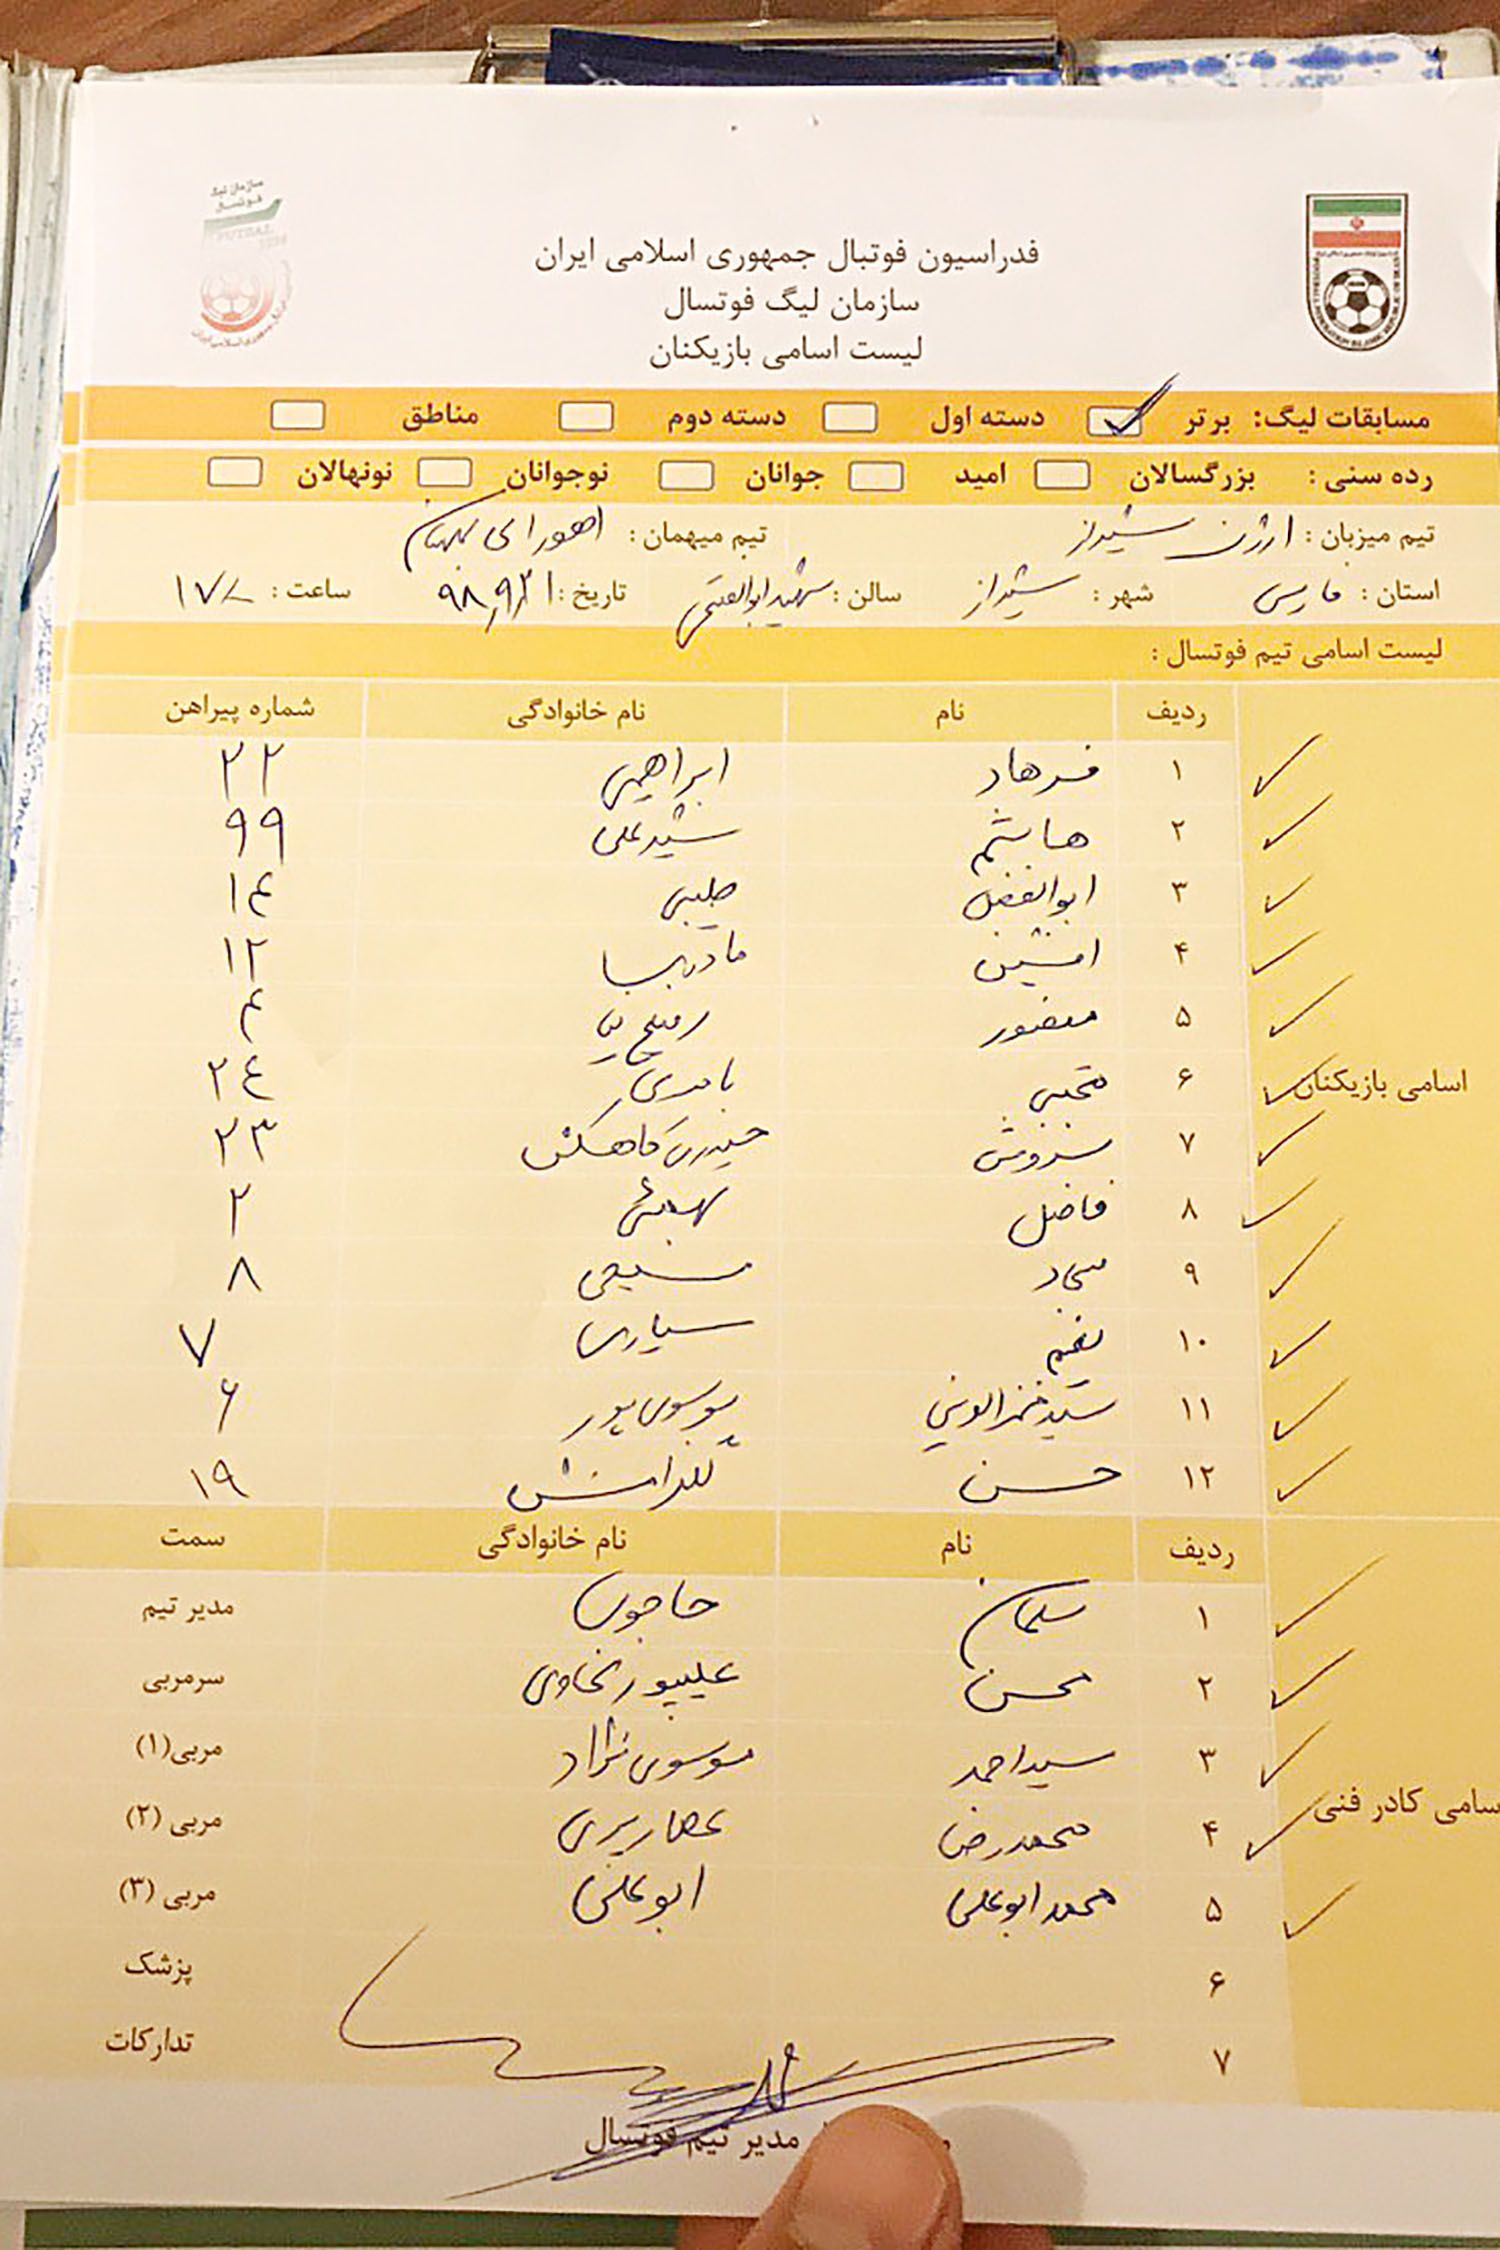 سازمان لیگ
فوتسال
FUTSAL
فدراسیون فوتبال جمهوری اسلامی ایران
سازمان لیگ فوتسال
لیست اسامی بازیکنان
مسابقات لیگ: برتر دسته اول دسته دوم مناطق
رده سنی : بزرگسالان امید جوانان نوجوانان نونهالان
تیم میزبان : ارژن شیراز تیم میهمان : اهورای بهبهان
استان : فارس شهر : شیراز سالن : شهید ابوالفتحی تاریخ : ساعت : ۱۷
لیست اسامی تیم فوتسال :
ردیف نام نام خانوادگی شماره پیراهن
۱ فرهاد ابراهیمی ۲۲
۲ هاشم شیدعلی ۹۹
۳ ابوالفضل ۱۴
۴ افشین ۱۲
۵ منصور ۴
۶ مجتبی ۲۴
۷ حیدری ۲۳
۸ فاضل ۲
۹ سجاد ۸
۱۰ ۷
۱۱ موسوی پور ۶
۱۲ حسن ۱۹
اسامی بازیکنان
ردیف نام نام خانوادگی سمت
۱ سلمان مدیر تیم
۲ محسن علیپور سرمربی
۳ سیداحمد موسوی نژاد مربی(۱)
۴ محمدرضا مربی (۲)
۵ محمد ابوعلی ابوعلی مربی (۳)
۶ پزشک
۷ تدارکات
سامی کادر فنی
مدیر تیم فوتسال